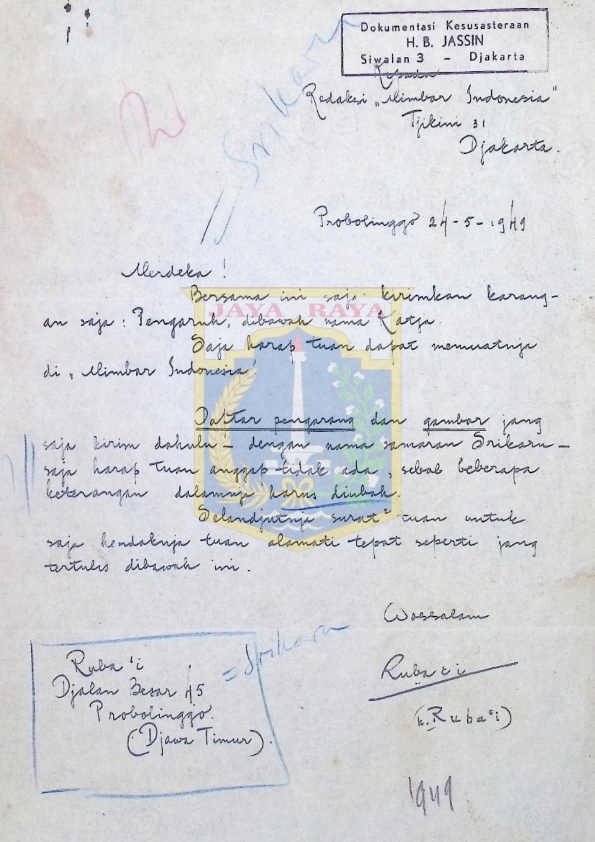 Dokumentasi Kesusasteraan
H. B. JASSIN
Siwalan 3 – Djakarta
Kepada
Redaksi „Mimbar Indonesia"
Tjikini 31
Djakarta.
Srikaru
Probolinggo 24-5-1949
Merdeka !
Bersama ini saja kirimkan karang-
an saja : Pengaruh, dibawah nama Katja.
JAYA RAYA
Saja harap tuan dapat memuatnja
di „Mimbar Indonesia"
Daftar pengarang dan gambar jang
saja kirim dahulu – dengan nama samaran Srikaru –
saja harap tuan anggap tidak ada, sebab beberapa
keterangan dalamnja harus diubah.
Selandjutnja surat² tuan untuk
saja hendaknja tuan alamati tepat seperti jang
tertulis dibawah ini.
Wassalam
Ruba'i
Djalan Besar 45
Probolinggo.
(Djawa Timur).
= Srikaru
Ruba'i
(k. Ruba'i)
1949